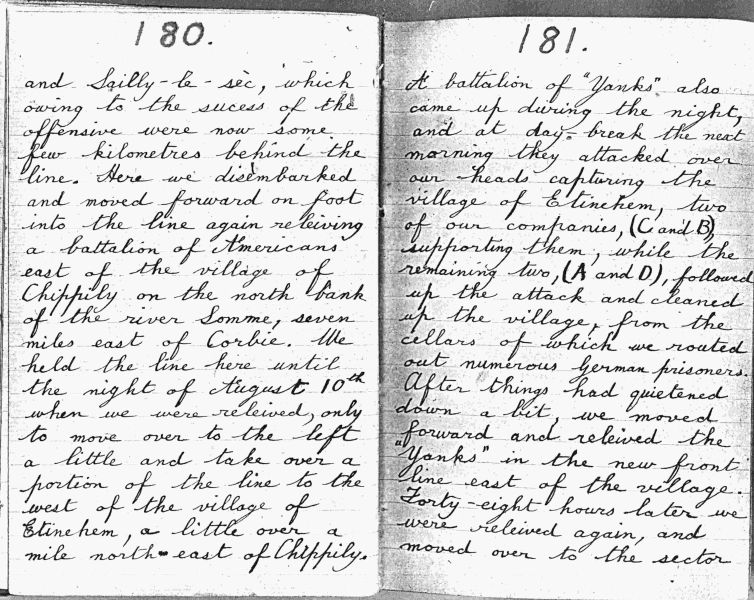 180.
and Sailly-le-sèc, which
owing to the sucess of the
offensive were now some
few kilometres behind the
line. Here we disembarked
and moved forward on foot
into the line again releiving
a battalion of Americans
east of the village of
Chippily on the north bank
of the river Somme, seven
miles east of Corbie. We
held the line here until
the night of August 10th
when we were releived, only
to move over to the left
a little and take over a
portion of the line to the
west of the village of
Etinehem, a little over a
mile north-east of Chippily.
181.
A battalion of "Yanks" also
came up during the night,
and at day-break the next
morning they attacked over
our heads capturing the
village of Etinehem, two
of our companies, (C and B)
supporting them, while the
remaining two, (A and D), followed
up the attack and cleaned
up the village, from the
cellars of which we routed
out numerous German prisoners.
After things had quietened
down a bit, we moved
forward and releived the
"Yanks" in the new front
line east of the village.
Forty-eight hours later we
were releived again, and
moved over to the sector